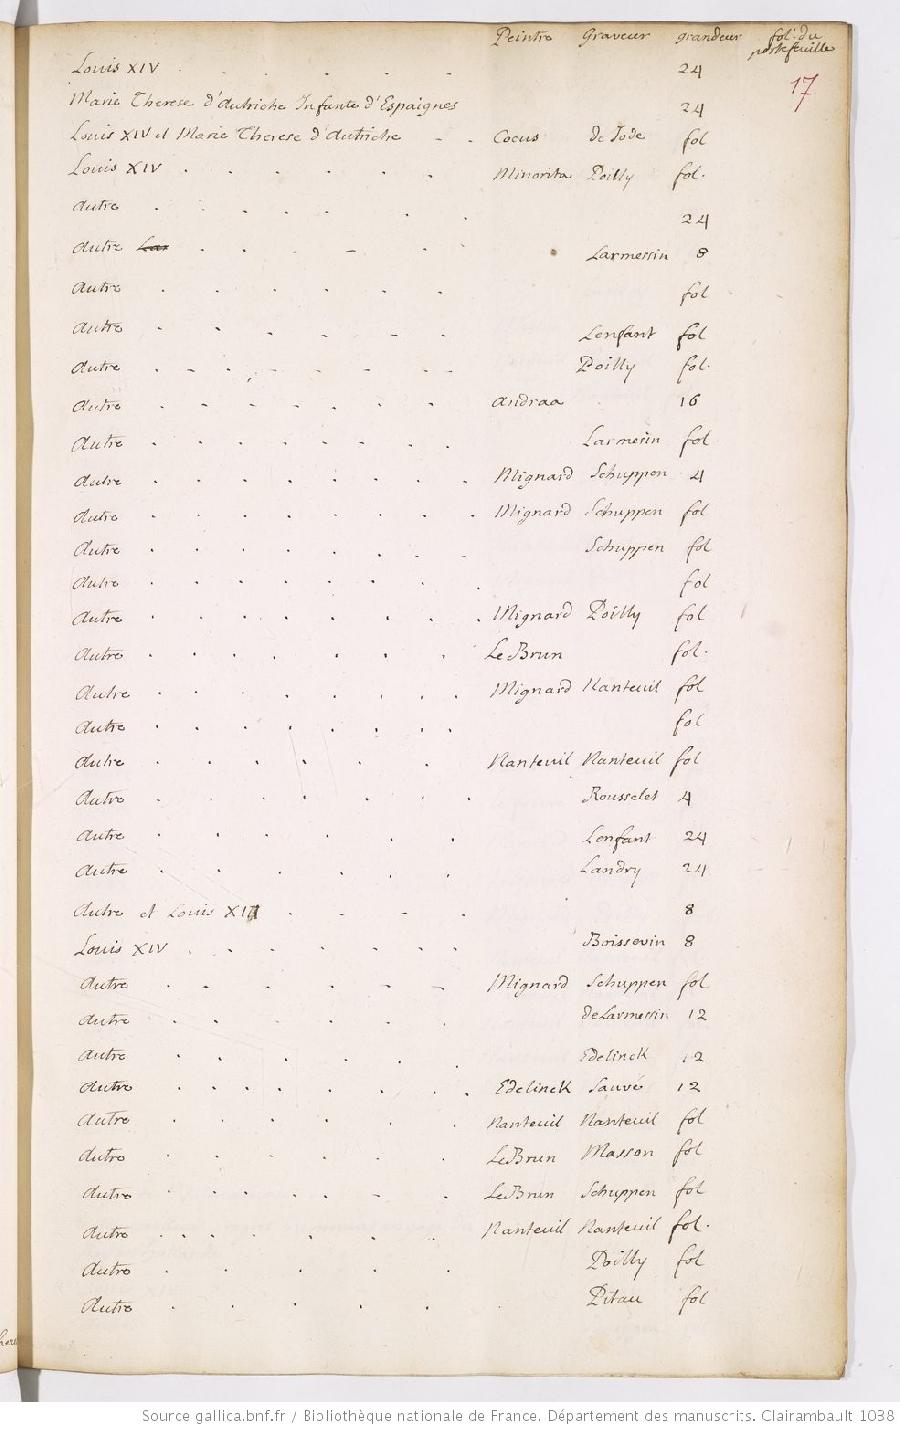 Peintre Graveur grandeur fol. du
portefeuille
17
Louis XIV . . . . . 24
Marie Therese d'Autriche Infante d'Espaignes 24
Louis XIV et Marie Therese d'Autriche - . Coeus de Jode fol
Louis XIV . . . . . . Minorita Poilly fol.
Autre . . . . . . . 24
Autre Lar . . . - . . Larmessin 8
Autre . . . . . . fol
Autre . . . . . . Lenfant fol
Autre . . . . . . . Poilly fol.
Autre . . . . . . . Andraa 16
Autre . . . . . . . . Larmesin fol
Autre . . . . . . . . Mignard Schuppen 4
Autre . . . . . . . . Mignard Schuppen fol
Autre . . . . . . . . Schuppen fol
Autre . . . . . . . . fol
Autre . . . . . . . . Mignard Poilly fol
Autre . . . . . . . Le Brun fol.
Autre . . . . . . . . Mignard Nanteuil fol
Autre . . . . . . . . fol
Autre . . . . . . . Nanteuil Nanteuil fol
Autre . . . . . . Rousselet 4
Autre . . . . . . Lenfant 24
Autre . . . . . . Landry 24
Autre et Louis XIII . . - . 8
Louis XIV . . . . . . . Boissevin 8
Autre . . . . - - Mignard Schuppen fol
Autre . . . . . . . de Larmessin 12
Autre . . . . . . Edelinck 12
Autre . . . . . . . Edelinck Sauvé 12
Autre . . . . . . Nanteuil Nanteuil fol
Autre . . . . . LeBrun Masson fol
Autre . . . . . - . LeBrun Schuppen fol
Autre . . . . . . . Nanteuil Nanteuil fol.
Autre . . . . . Poilly fol
Autre . . . . . Pitau fol
Source gallica.bnf.fr / Bibliothèque nationale de France. Département des manuscrits. Clairambault 1038